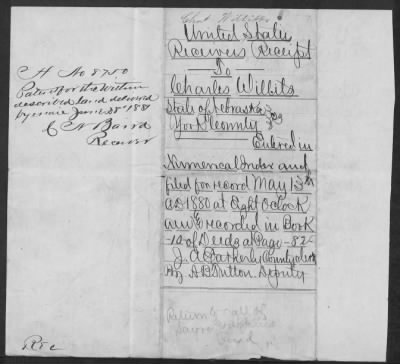 United States
Receivers Receipt
To
Charles Wilbits
State of Nebraska } ss
York County
Entered in
Numerical Index and
filed for record May 13th
AD 1880 at Eight O clock
and recorded in Book
-10 of Deeds at Page -82-
County clerk
By Deputy
H No 8750
Patent for the within
described land delivered
by me June 28th 1881
C N Baird
Receiver
Return